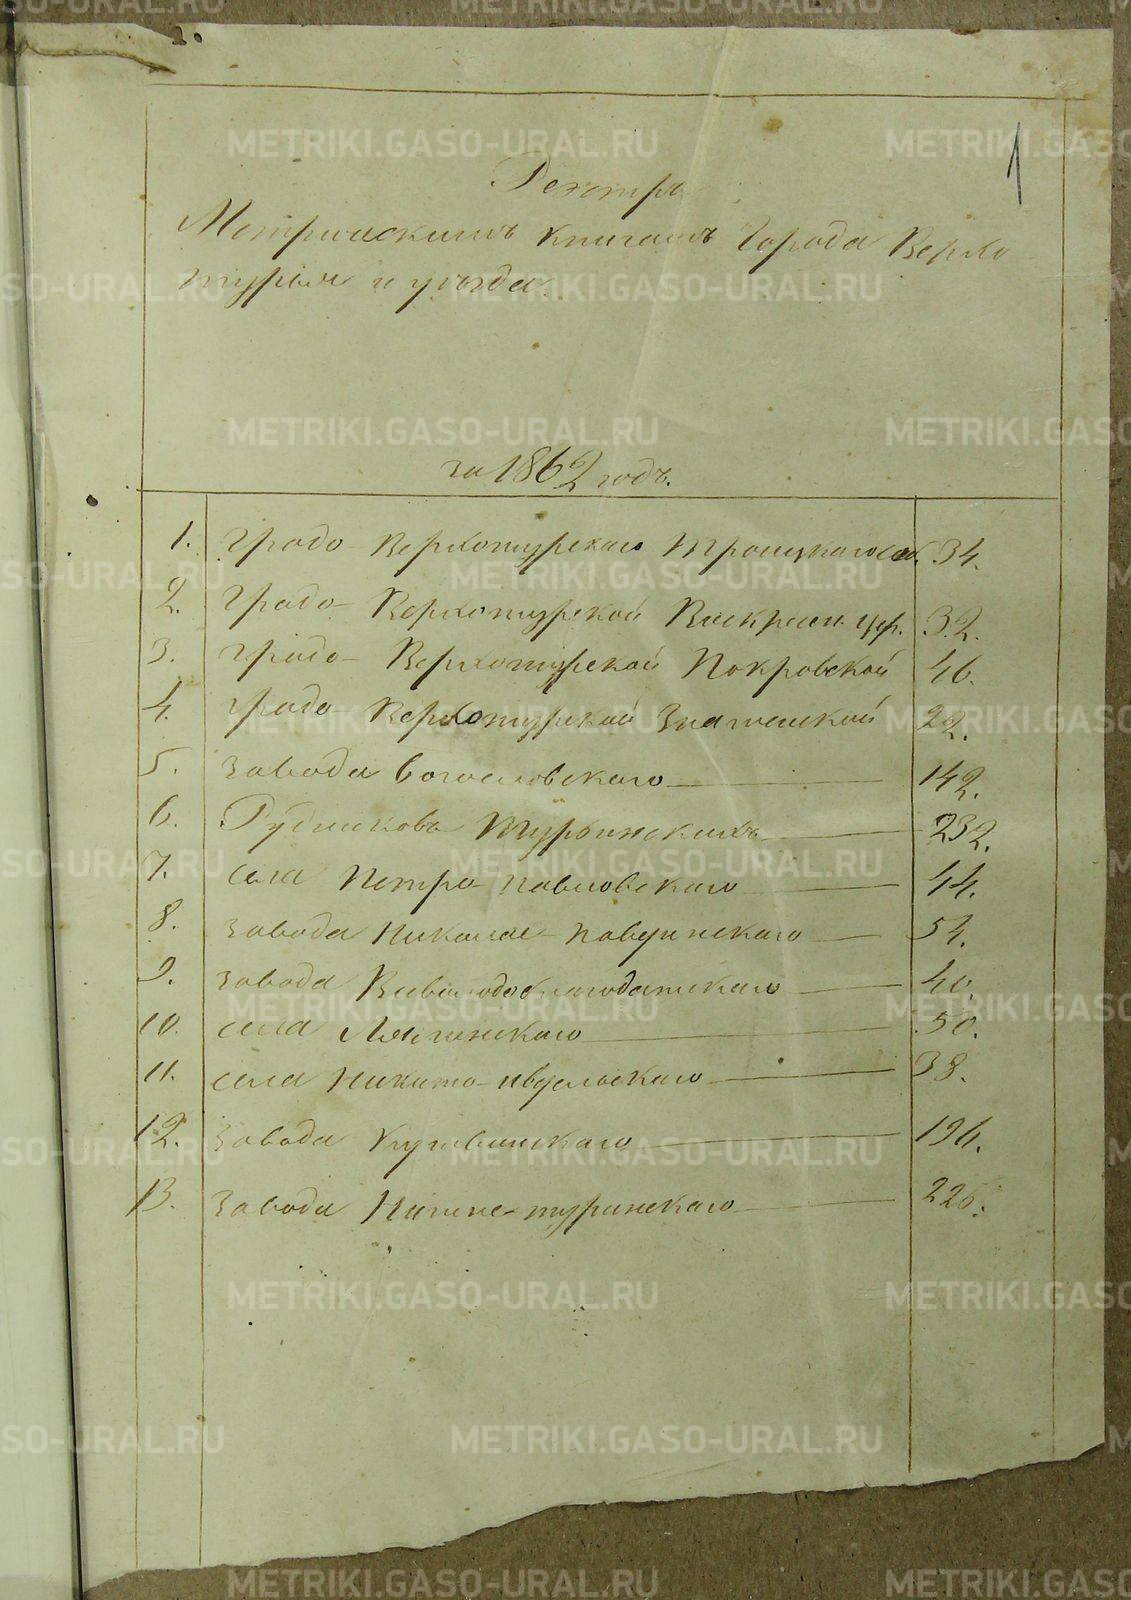 1
Реэстръ
Метрическимъ книгамъ города Верхо
турья и уѣзда.
за 1862 годъ.
1. Градо-Верхотурскаго Троицкаго соб. 34.
2. Градо-Верхотурской Воскресен. цер. 32.
3. Градо-Верхотурской Покровской 46.
4. Градо-Верхотурской Знаменской 22.
5. Завода Богословскаго 142.
6. Рудниковъ Турьинскихъ 232.
7. села Петро-павловскаго 44.
8. завода Николае-павдинскаго 54.
9. завода Всеволодоблагодатскаго 40.
10. села Лялинскаго 50.
11. села Никито-ивдельскаго 38.
12. завода Кушвинскаго 196.
13. завода Нижне-туринскаго 226.
METRIKI.GASO-URAL.RU